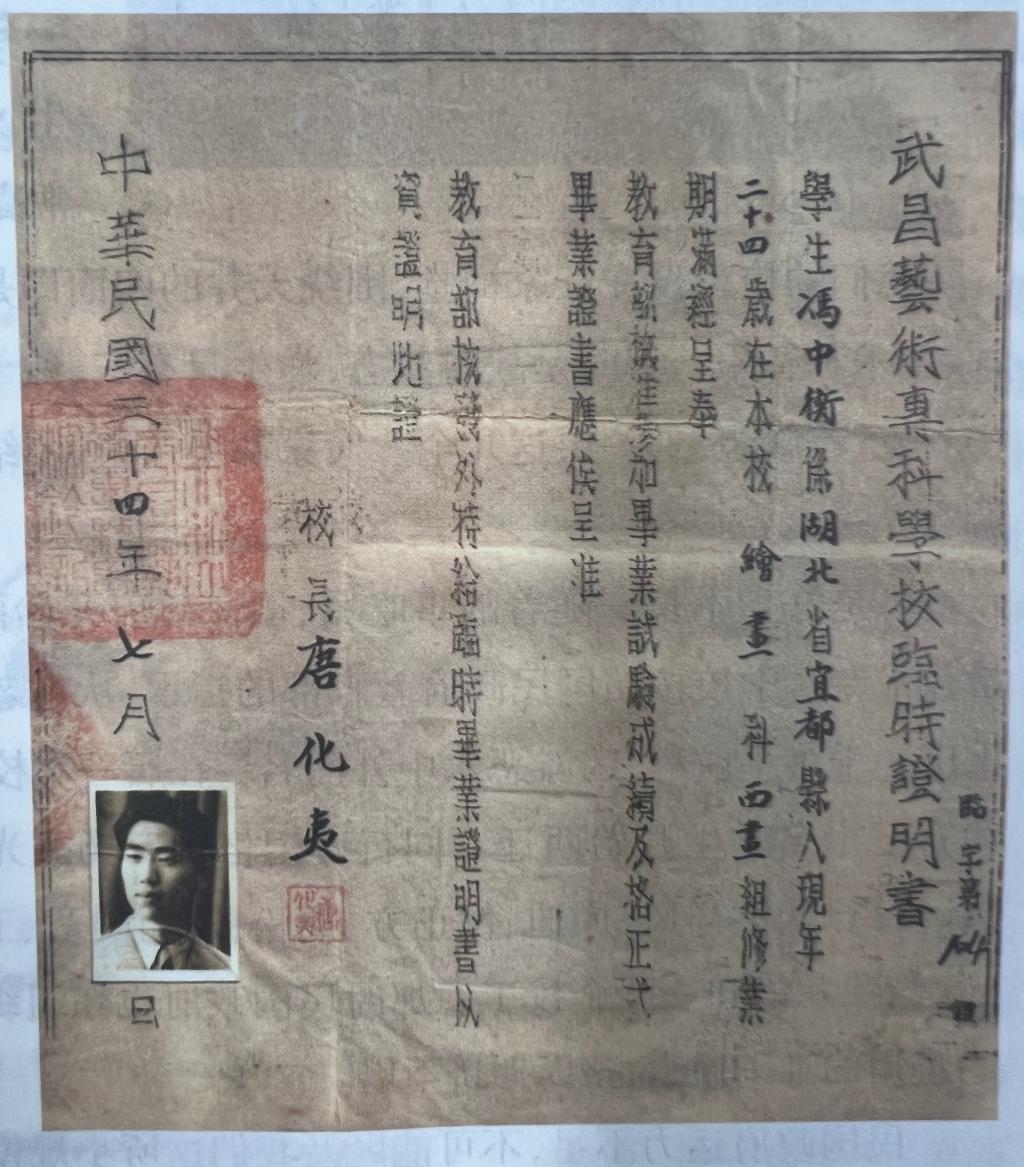 武昌藝術專科學校臨時證明書
臨字第104號
學生馮中衡係湖北省宜都縣人現年
二十四歲在本校繪畫科西畫組修業
期滿經呈奉
教育部核准參加畢業試驗成績及格正式
畢業證書應俟呈准
教育部核發外特給臨時畢業證明書以
資證明此證
校長唐化夷
中華民國三十四年七月 日